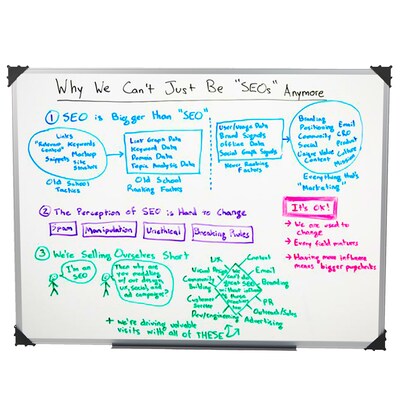 Why We Can't Just Be "SEOs" Anymore
1 SEO is Bigger than "SEO"
Links
"Relevant Keywords
Content"
Markup
Snippets
Site
Structure
Old School
Tactics
Link Graph Data
Keyword Data
Domain Data
Topic Analysis Data
Old School
Ranking Factors
User/Usage Data
Brand Signals
Offline Data
Social Graph Signals
Newer Ranking
Factors
Branding
Positioning Email
Community CRO
Social Product
Unique Value Culture
Content Mission
Everything that's
"Marketing"
2 The Perception of SEO is Hard to Change
Spam
Manipulation
Unethical
Breaking Rules
It's OK!
→ We are used to
change
→ Every field matures
→ Having more influence
means bigger paychecks
3 We're Selling Ourselves Short
I'm an
SEO
Then why are
you meddling
w/ our design,
UX, social, and
ad campaigns?
UX
Content
Visual Design
Email
Community
Building
Branding
Customer
Service
PR
Dev/engineering
Outreach/Sales
Advertising
We
can't do
great SEO
without influencing
these
practices
too
+ we're driving valuable
visits with all of THESE